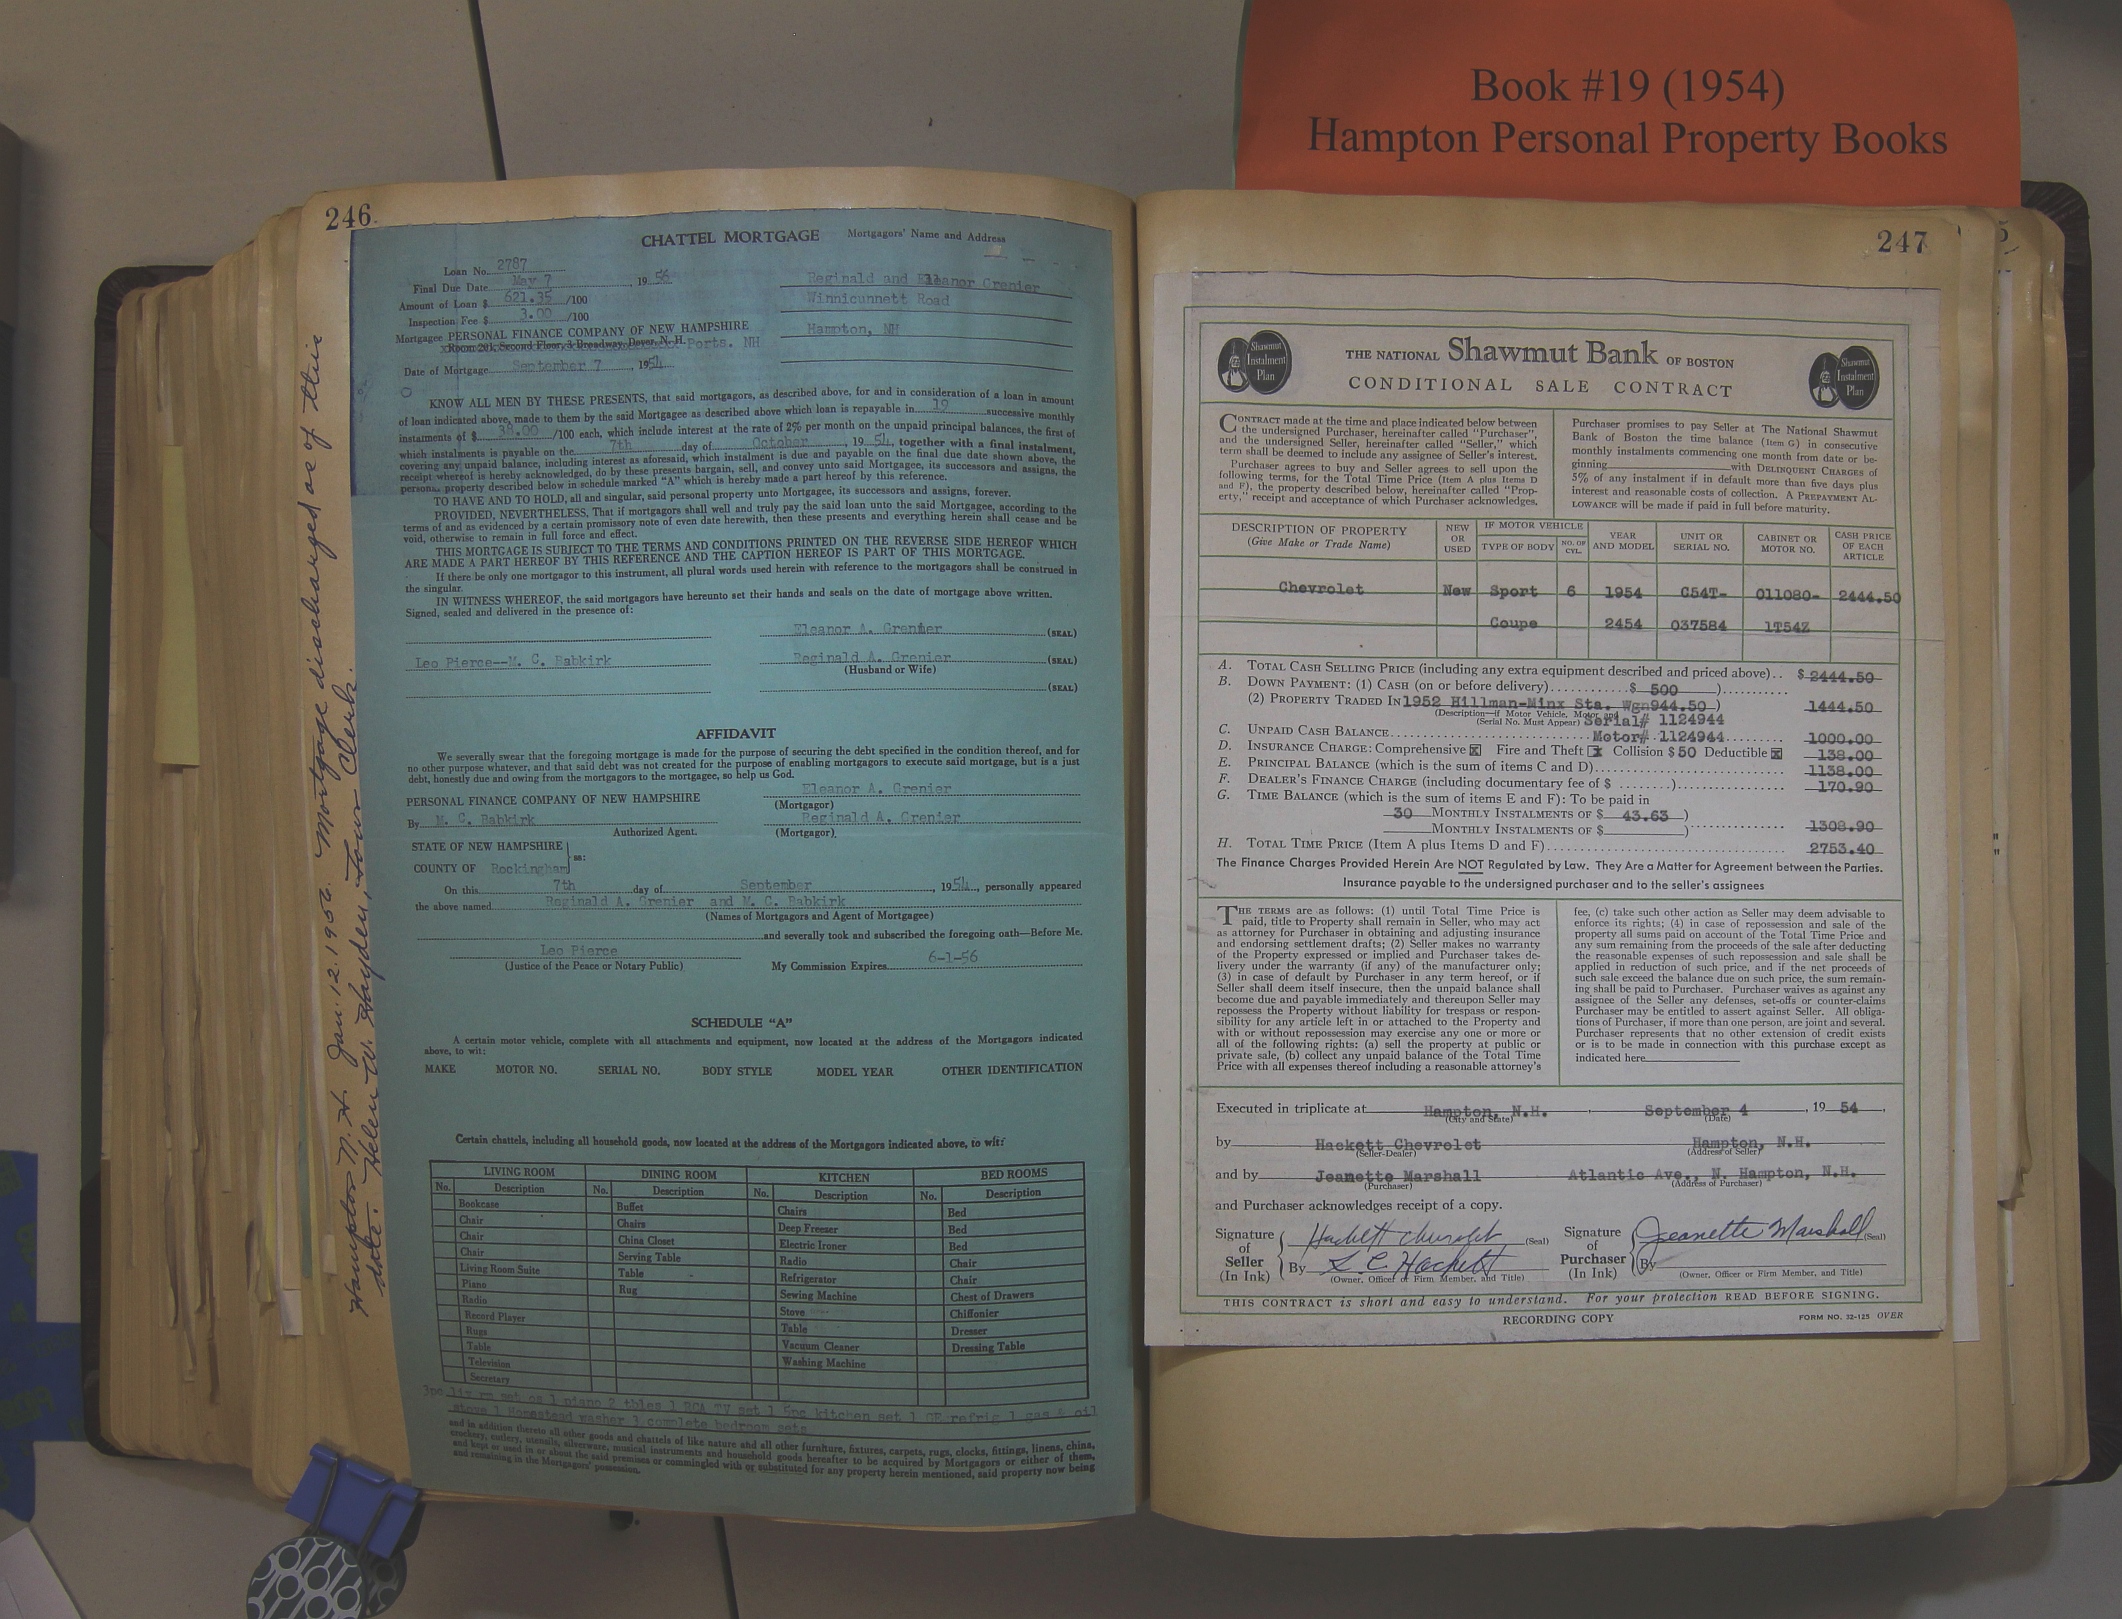 Book #19 (1954)
Hampton Personal Property Books
246
CHATTEL MORTGAGE
Mortgagors' Name and Address
Loan No. 2787
Final Due Date May 7, 1956
Amount of Loan $ 621.35 /100
Inspection Fee $ 3.00 /100
Mortgagee PERSONAL FINANCE COMPANY OF NEW HAMPSHIRE
Room 201, Second Floor, 3 Broadway, Dover, N. H. Ports. NH
Date of Mortgage September 7, 1954
Reginald and Eleanor Grenier
Winnicunnett Road
Hampton, NH
KNOW ALL MEN BY THESE PRESENTS, that said mortgagors, as described above, for and in consideration of a loan in amount
of loan indicated above, made to them by the said Mortgagee as described above which loan is repayable in 19 successive monthly
instalments of $ 38.00 /100 each, which include interest at the rate of 2% per month on the unpaid principal balances, the first of
which instalments is payable on the 7th day of October, 1954, together with a final instalment,
covering any unpaid balance, including interest as aforesaid, which instalment is due and payable on the final due date shown above, the
receipt whereof is hereby acknowledged, do by these presents bargain, sell, and convey unto said Mortgagee, its successors and assigns, the
personal property described below in schedule marked "A" which is hereby made a part hereof by this reference.
TO HAVE AND TO HOLD, all and singular, said personal property unto Mortgagee, its successors and assigns, forever.
PROVIDED, NEVERTHELESS, That if mortgagors shall well and truly pay the said loan unto the said Mortgagee, according to the
terms of and as evidenced by a certain promissory note of even date herewith, then these presents and everything herein shall cease and be
void, otherwise to remain in full force and effect.
THIS MORTGAGE IS SUBJECT TO THE TERMS AND CONDITIONS PRINTED ON THE REVERSE SIDE HEREOF WHICH
ARE MADE A PART HEREOF BY THIS REFERENCE AND THE CAPTION HEREOF IS PART OF THIS MORTGAGE.
If there be only one mortgagor to this instrument, all plural words used herein with reference to the mortgagors shall be construed in
the singular.
IN WITNESS WHEREOF, the said mortgagors have hereunto set their hands and seals on the date of mortgage above written.
Signed, sealed and delivered in the presence of:
Eleanor A. Grenier (SEAL)
Leo Pierce--M. C. Babkirk Reginald A. Grenier (SEAL)
(Husband or Wife)
(SEAL)
AFFIDAVIT
We severally swear that the foregoing mortgage is made for the purpose of securing the debt specified in the condition thereof, and for
no other purpose whatever, and that said debt was not created for the purpose of enabling mortgagors to execute said mortgage, but is a just
debt, honestly due and owing from the mortgagors to the mortgagee, so help us God.
Eleanor A. Grenier
PERSONAL FINANCE COMPANY OF NEW HAMPSHIRE (Mortgagor)
By M. C. Babkirk Reginald A. Grenier
Authorized Agent. (Mortgagor)
STATE OF NEW HAMPSHIRE
ss:
COUNTY OF Rockingham
On this 7th day of September, 1954, personally appeared
the above named Reginald A. Grenier and M. C. Babkirk
(Names of Mortgagors and Agent of Mortgagee)
and severally took and subscribed the foregoing oath—Before Me.
Leo Pierce
(Justice of the Peace or Notary Public) My Commission Expires 6-1-56
SCHEDULE "A"
A certain motor vehicle, complete with all attachments and equipment, now located at the address of the Mortgagors indicated
above, to wit:
MAKE MOTOR NO. SERIAL NO. BODY STYLE MODEL YEAR OTHER IDENTIFICATION
Certain chattels, including all household goods, now located at the address of the Mortgagors indicated above, to wit:
LIVING ROOM DINING ROOM KITCHEN BED ROOMS
No. Description No. Description No. Description No. Description
Bookcase Buffet Chairs Bed
Chair Chairs Deep Freezer Bed
Chair China Closet Electric Ironer Bed
Chair Serving Table Radio Chair
Living Room Suite Table Refrigerator Chair
Piano Rug Sewing Machine Chest of Drawers
Radio Stove Chiffonier
Record Player Table Dresser
Rugs Vacuum Cleaner Dressing Table
Table Washing Machine
Television
Secretary
3pc liv rm set os 1 piano 2 tbles 1 RCA TV set 1 5pc kitchen set 1 GE refrig 1 gas & oil
stove 1 Homestead washer 3 complete bedroom sets
and in addition thereto all other goods and chattels of like nature and all other furniture, fixtures, carpets, rugs, clocks, fittings, linens, china,
crockery, cutlery, utensils, silverware, musical instruments and household goods hereafter to be acquired by Mortgagors or either of them,
and kept or used in or about the said premises or commingled with or substituted for any property herein mentioned, said property now being
and remaining in the Mortgagors' possession.
Hampton N. H. Jan. 12, 1956. Mortgage discharged as of this
date. Helen W. Hayden, Town Clerk.
247
Shawmut Instalment Plan
THE NATIONAL Shawmut Bank OF BOSTON
CONDITIONAL SALE CONTRACT
Shawmut Instalment Plan
CONTRACT made at the time and place indicated below between
the undersigned Purchaser, hereinafter called "Purchaser",
and the undersigned Seller, hereinafter called "Seller," which
term shall be deemed to include any assignee of Seller's interest.
Purchaser agrees to buy and Seller agrees to sell upon the
following terms, for the Total Time Price (Item A plus Items D
and F), the property described below, hereinafter called "Property,"
receipt and acceptance of which Purchaser acknowledges.
Purchaser promises to pay Seller at The National Shawmut
Bank of Boston the time balance (Item G) in consecutive
monthly instalments commencing one month from date or be-
ginning with DELINQUENT CHARGES of
5% of any instalment if in default more than five days plus
interest and reasonable costs of collection. A PREPAYMENT AL-
LOWANCE will be made if paid in full before maturity.
DESCRIPTION OF PROPERTY (Give Make or Trade Name) NEW OR USED IF MOTOR VEHICLE TYPE OF BODY NO. OF CYL. YEAR AND MODEL UNIT OR SERIAL NO. CABINET OR MOTOR NO. CASH PRICE OF EACH ARTICLE
Chevrolet New Sport 6 1954 C54T- 011080- 2444.50
Coupe 2454 037584 1T54Z
A. TOTAL CASH SELLING PRICE (including any extra equipment described and priced above) $ 2444.50
B. DOWN PAYMENT: (1) CASH (on or before delivery) $ 500 )
(2) PROPERTY TRADED IN 1952 Hillman-Minx Sta. Wgn 944.50 ) 1444.50
(Description—if Motor Vehicle, Motor and
Serial No. Must Appear) Serial# 1124944
C. UNPAID CASH BALANCE Motor# 1124944 1000.00
D. INSURANCE CHARGE: Comprehensive ☒ Fire and Theft ☒ Collision $ 50 Deductible ☒ 138.00
E. PRINCIPAL BALANCE (which is the sum of items C and D) 1138.00
F. DEALER'S FINANCE CHARGE (including documentary fee of $ ) 170.90
G. TIME BALANCE (which is the sum of items E and F): To be paid in
30 MONTHLY INSTALMENTS OF $ 43.63 )
MONTHLY INSTALMENTS OF $ ) 1308.90
H. TOTAL TIME PRICE (Item A plus Items D and F) 2753.40
The Finance Charges Provided Herein Are NOT Regulated by Law. They Are a Matter for Agreement between the Parties.
Insurance payable to the undersigned purchaser and to the seller's assignees
THE TERMS are as follows: (1) until Total Time Price is
paid, title to Property shall remain in Seller, who may act
as attorney for Purchaser in obtaining and adjusting insurance
and endorsing settlement drafts; (2) Seller makes no warranty
of the Property expressed or implied and Purchaser takes de-
livery under the warranty (if any) of the manufacturer only;
(3) in case of default by Purchaser in any term hereof, or if
Seller shall deem itself insecure, then the unpaid balance shall
become due and payable immediately and thereupon Seller may
repossess the Property without liability for trespass or respon-
sibility for any article left in or attached to the Property and
with or without repossession may exercise any one or more or
all of the following rights: (a) sell the property at public or
private sale, (b) collect any unpaid balance of the Total Time
Price with all expenses thereof including a reasonable attorney's
fee, (c) take such other action as Seller may deem advisable to
enforce its rights; (4) in case of repossession and sale of the
property all sums paid on account of the Total Time Price and
any sum remaining from the proceeds of the sale after deducting
the reasonable expenses of such repossession and sale shall be
applied in reduction of such price, and if the net proceeds of
such sale exceed the balance due on such price, the sum remain-
ing shall be paid to Purchaser. Purchaser waives as against any
assignee of the Seller any defenses, set-offs or counter-claims
Purchaser may be entitled to assert against Seller. All obliga-
tions of Purchaser, if more than one person, are joint and several.
Purchaser represents that no other extension of credit exists
or is to be made in connection with this purchase except as
indicated here
Executed in triplicate at Hampton, N.H., September 4, 19 54.
(City and State) (Date)
by Hackett Chevrolet Hampton, N.H.
(Seller-Dealer) (Address of Seller)
and by Jeanette Marshall Atlantic Ave., N. Hampton, N.H.
(Purchaser) (Address of Purchaser)
and Purchaser acknowledges receipt of a copy.
Signature of Seller (In Ink) Hackett Chevrolet (Seal)
By S. C. Hackett
(Owner, Officer or Firm Member, and Title)
Signature of Purchaser (In Ink) Jeanette Marshall (Seal)
By
(Owner, Officer or Firm Member, and Title)
THIS CONTRACT is short and easy to understand. For your protection READ BEFORE SIGNING.
RECORDING COPY
FORM NO. 32-125 OVER